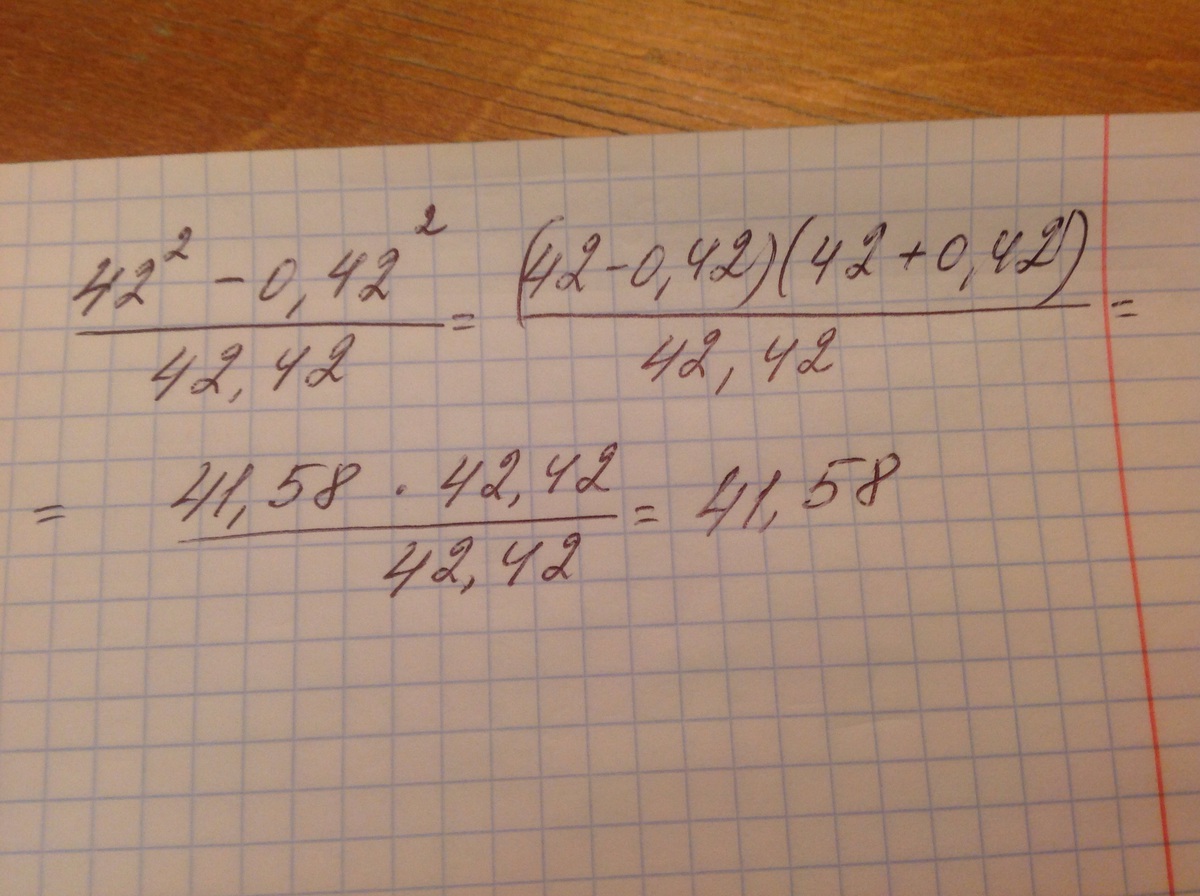 42² - 0,42² / 42,42 = (42-0,42)(42+0,42) / 42,42 =
= 41,58 · 42,42 / 42,42 = 41,58